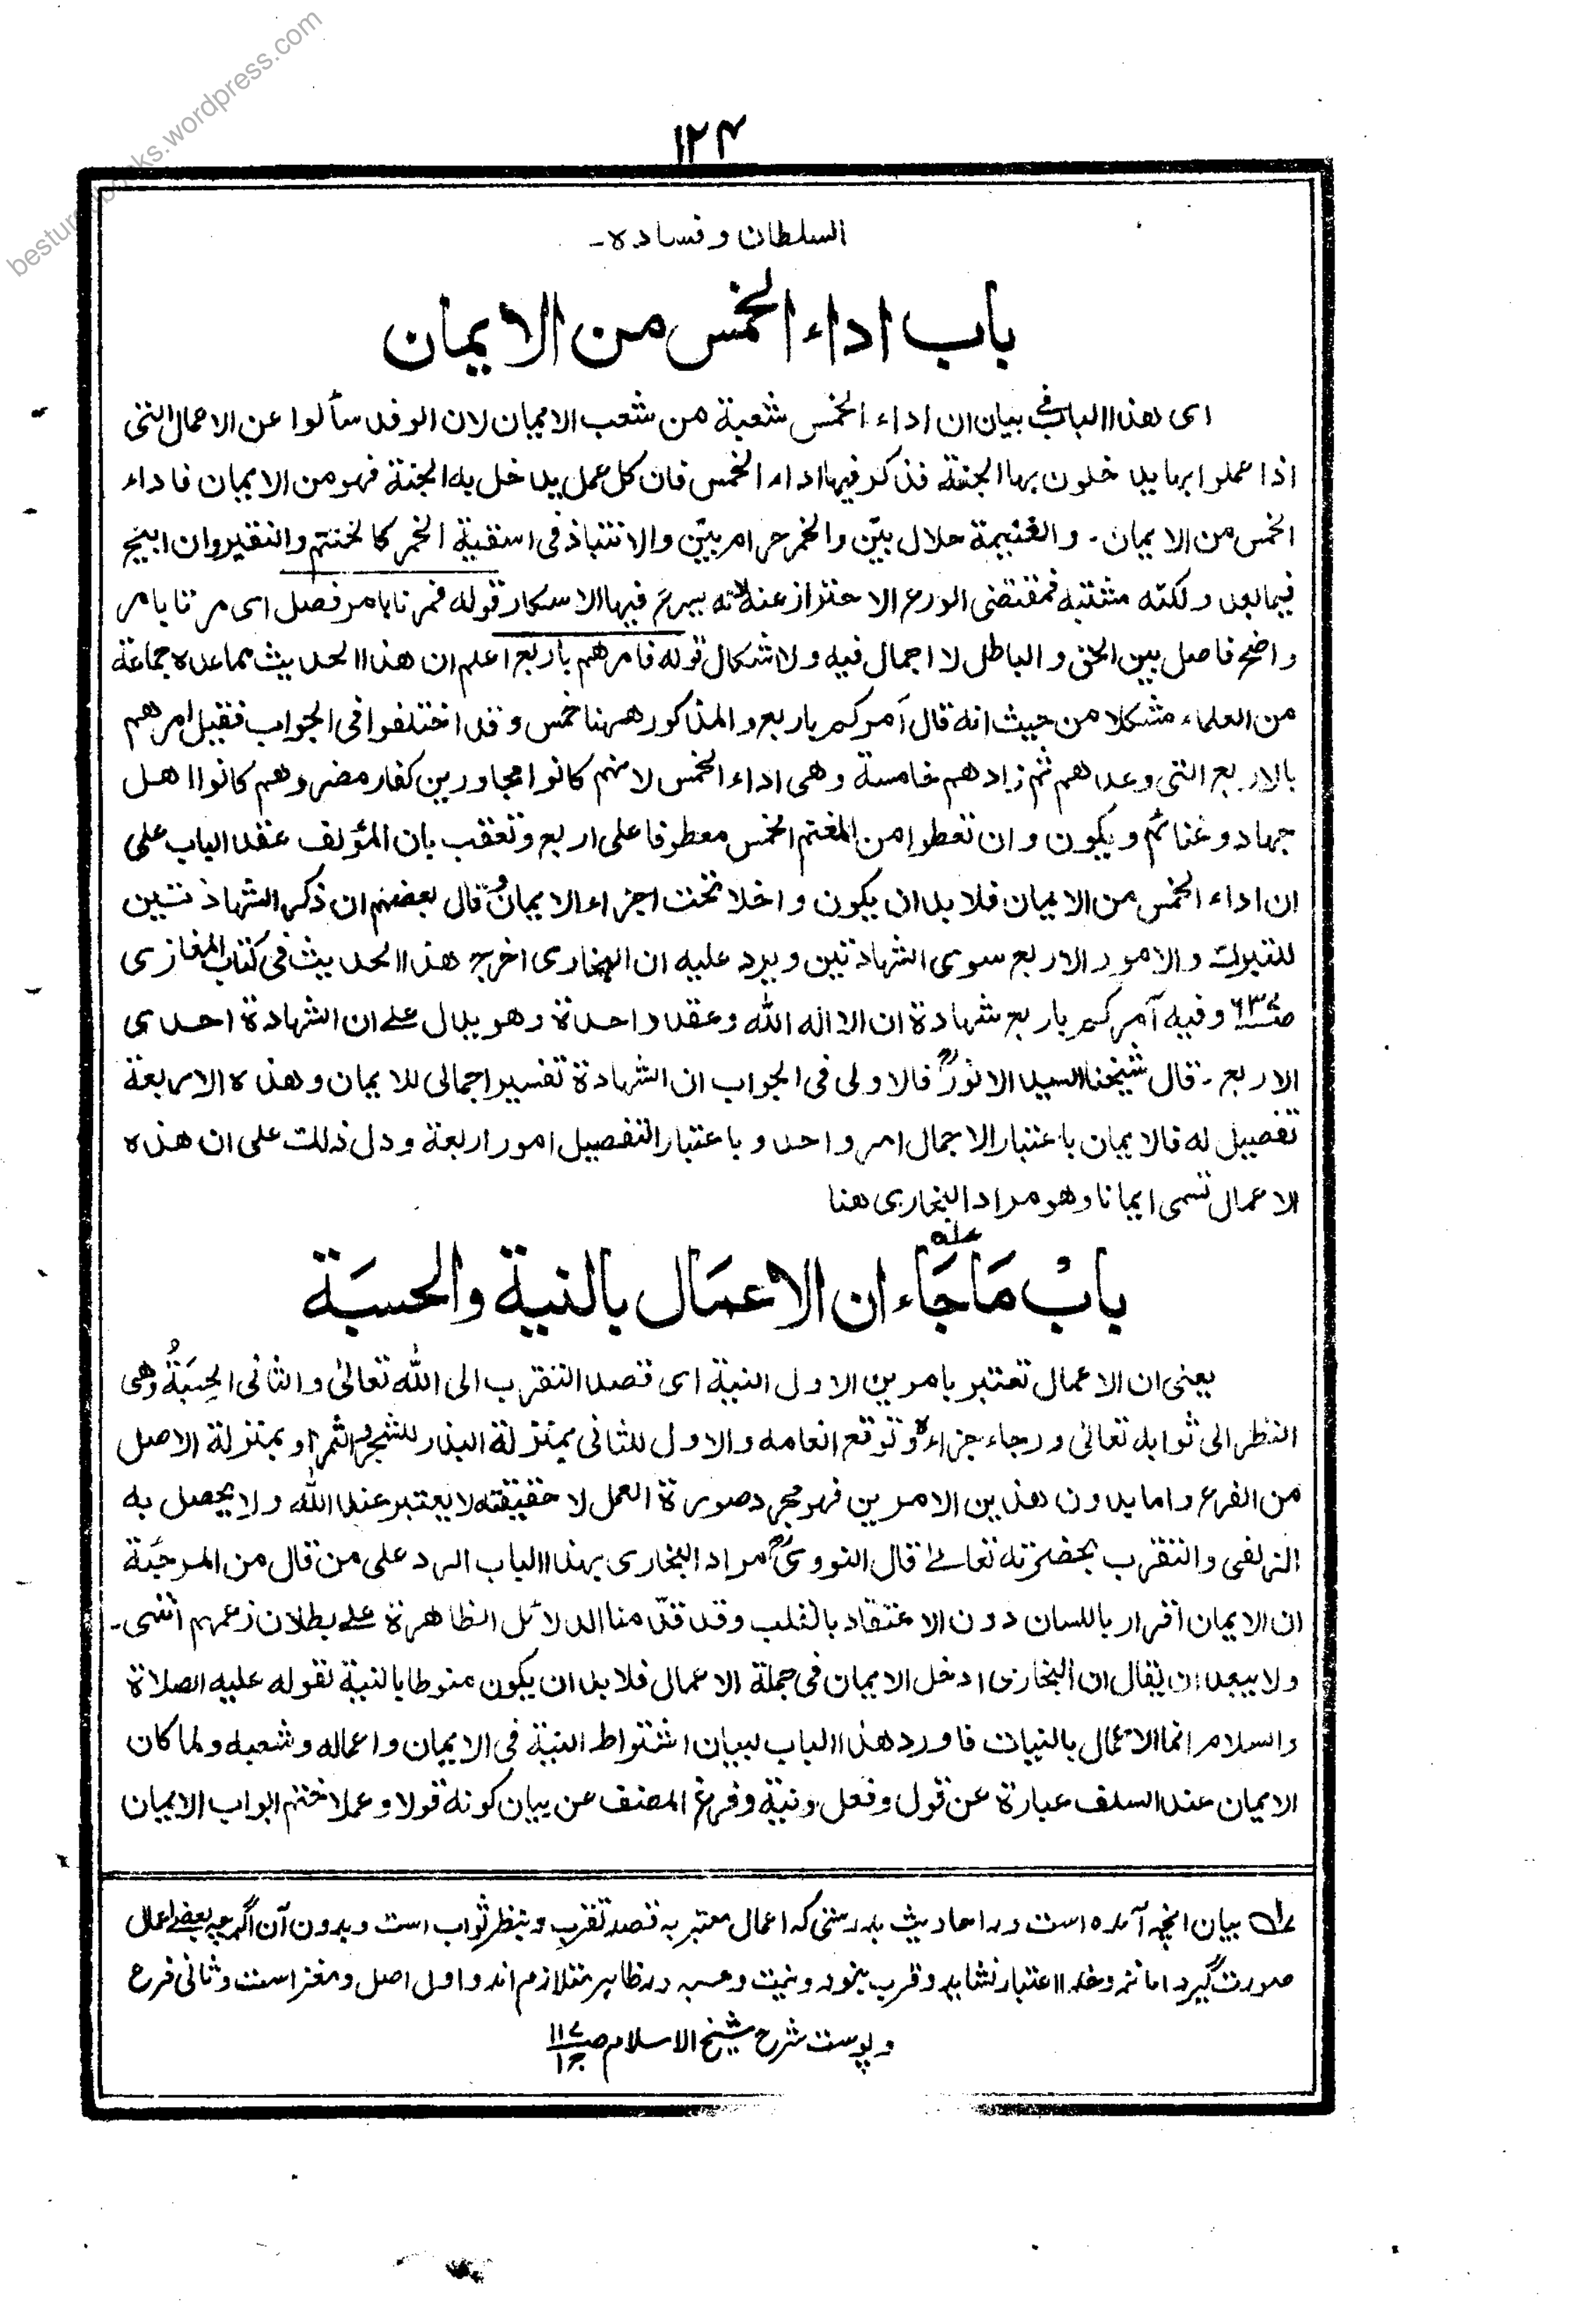 besturdubooks.wordpress.com
۱۲۴
السلطان وفساده۔
باب اداء الخمس من الایمان
ای هذا الباب فی بیان ان اداء الخمس شعبة من شعب الایمان لان الوفد سألوا عن الاعمال التی
اذا عملوا بها یدخلون بها الجنة فذکر فیها اداء الخمس فان کل عمل یدخل به الجنة فهو من الایمان فاداء
الخمس من الایمان۔ والغنیمة حلال بیّن والخمر حرام بیّن والانتباذ فی اسقیة الخمر کالختنم والنقیر وان ابیح
فیما بعد ولکنه مشتبه فمقتضی الورع الاحتراز عنه لانه یسرع فیها الاسکار قوله فمرنا بامر فصل ای مرنا بامر
واضح فاصل بین الحق والباطل لا اجمال فیه ولا اشکال قوله فامرهم باربع اعلم ان هذا الحدیث مما عده جماعة
من العلماء مشکلا من حیث انه قال آمرکم باربع والمذکور ههنا خمس وقد اختلفوا فی الجواب فقیل امرهم
بالاربع التی وعدهم ثم زادهم خامسة وهی اداء الخمس لانهم کانوا مجاورین کفار مضر وهم کانوا اهل
جهاد وغنائم ویکون وان تعطوا من المغنم الخمس معطوفا علی اربع وتعقب بان المؤلف عقد الباب علی
ان اداء الخمس من الایمان فلا بد ان یکون داخلا تحت اجزاء الایمان وقال بعضهم ان ذکر الشهادتین
للتبرک والامور الاربع سوی الشهادتین ویرد علیه ان البخاری اخرج هذا الحدیث فی کتاب المغازی
ص۶۳ وفیه آمرکم باربع شهادة ان لا اله الا الله وعقد واحدة وهو یدل علے ان الشهادة احدی
الاربع۔ قال شیخنا السید الانورؒ فالاولی فی الجواب ان الشهادة تفسیر اجمالی للایمان وهذه الاربعة
تفصیل له فالایمان باعتبار الاجمال امر واحد وباعتبار التفصیل امور اربعة ودل ذلک علی ان هذه
الاعمال تسمی ایمانا وهو مراد البخاری هنا
بابْ مَا جَاء ان الاعمَال بالنیة والحسبَة
یعنی ان الاعمال تعتبر بامرین الاول النیة ای قصد التقرب الی الله تعالیٰ والثانی الحِسبَةُ وهی
النظر الی ثوابه تعالی ورجاء جزاءه وتوقع انعامه والاول للثانی بمنزلة البذر للشجر والثمر او بمنزلة الاصل
من الفرع واما بدون هذین الامرین فهو مجرد صورة العمل لا حقیقته لا یعتبر عند الله ولا یحصل به
الزلفی والتقرب بحضرته تعالےٰ قال النوویؒ مراد البخاری بهذا الباب الرد علی من قال من المرجئة
ان الایمان اقرار باللسان دون الاعتقاد بالقلب وقد قدّمنا الدلائل الظاهرة علے بطلان زعمهم انتهی۔
ولا یبعد ان یقال ان البخاری ادخل الایمان فی جملة الاعمال فلا بد ان یکون منوطا بالنیة لقوله علیه الصلاة
والسلام انما الاعمال بالنیات فاورد هذا الباب لبیان اشتراط النیة فی الایمان واعماله وشعبه ولما کان
الایمان عند السلف عبارة عن قول وفعل ونیة وفرغ المصنف عن بیان کونه قولا وعملا ختم ابواب الایمان
بیان انچه آمده است در احادیث بدرستی که اعمال معتبر به قصد تقرب و بنظر ثواب است و بدون آن اگرچه بعضے اعمال
صورت گیرد اما نزد خدا اعتبار نشاید و قرب نبخود و نیت و حسبه در ظاہر متلازم اند و اول اصل و مغز است و ثانی فرع
و پوست شرح شیخ الاسلام ص۱۱۷ ج۱